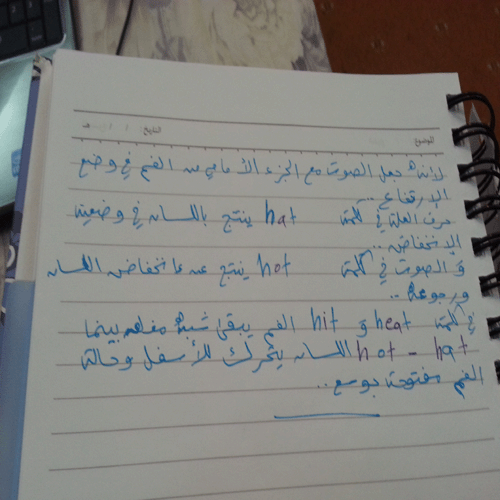 الموضوع التاريخ
لانه جعل الصوت مع الجزء الأمامي من الفم في وضع
الارتفاع ..
حرف العلة في كلمة hat ينتج باللسان في وضعية
الإنخفاض ..
و الصوت في كلمة hot ينتج عن انخفاض اللسان
ورجوعه ..
في كلمة heat و hit الفم يبقى شبه مغلق بينما
hot - hat اللسان يتحرك للأسفل وحالة
الفم مفتوحة بوسع ..